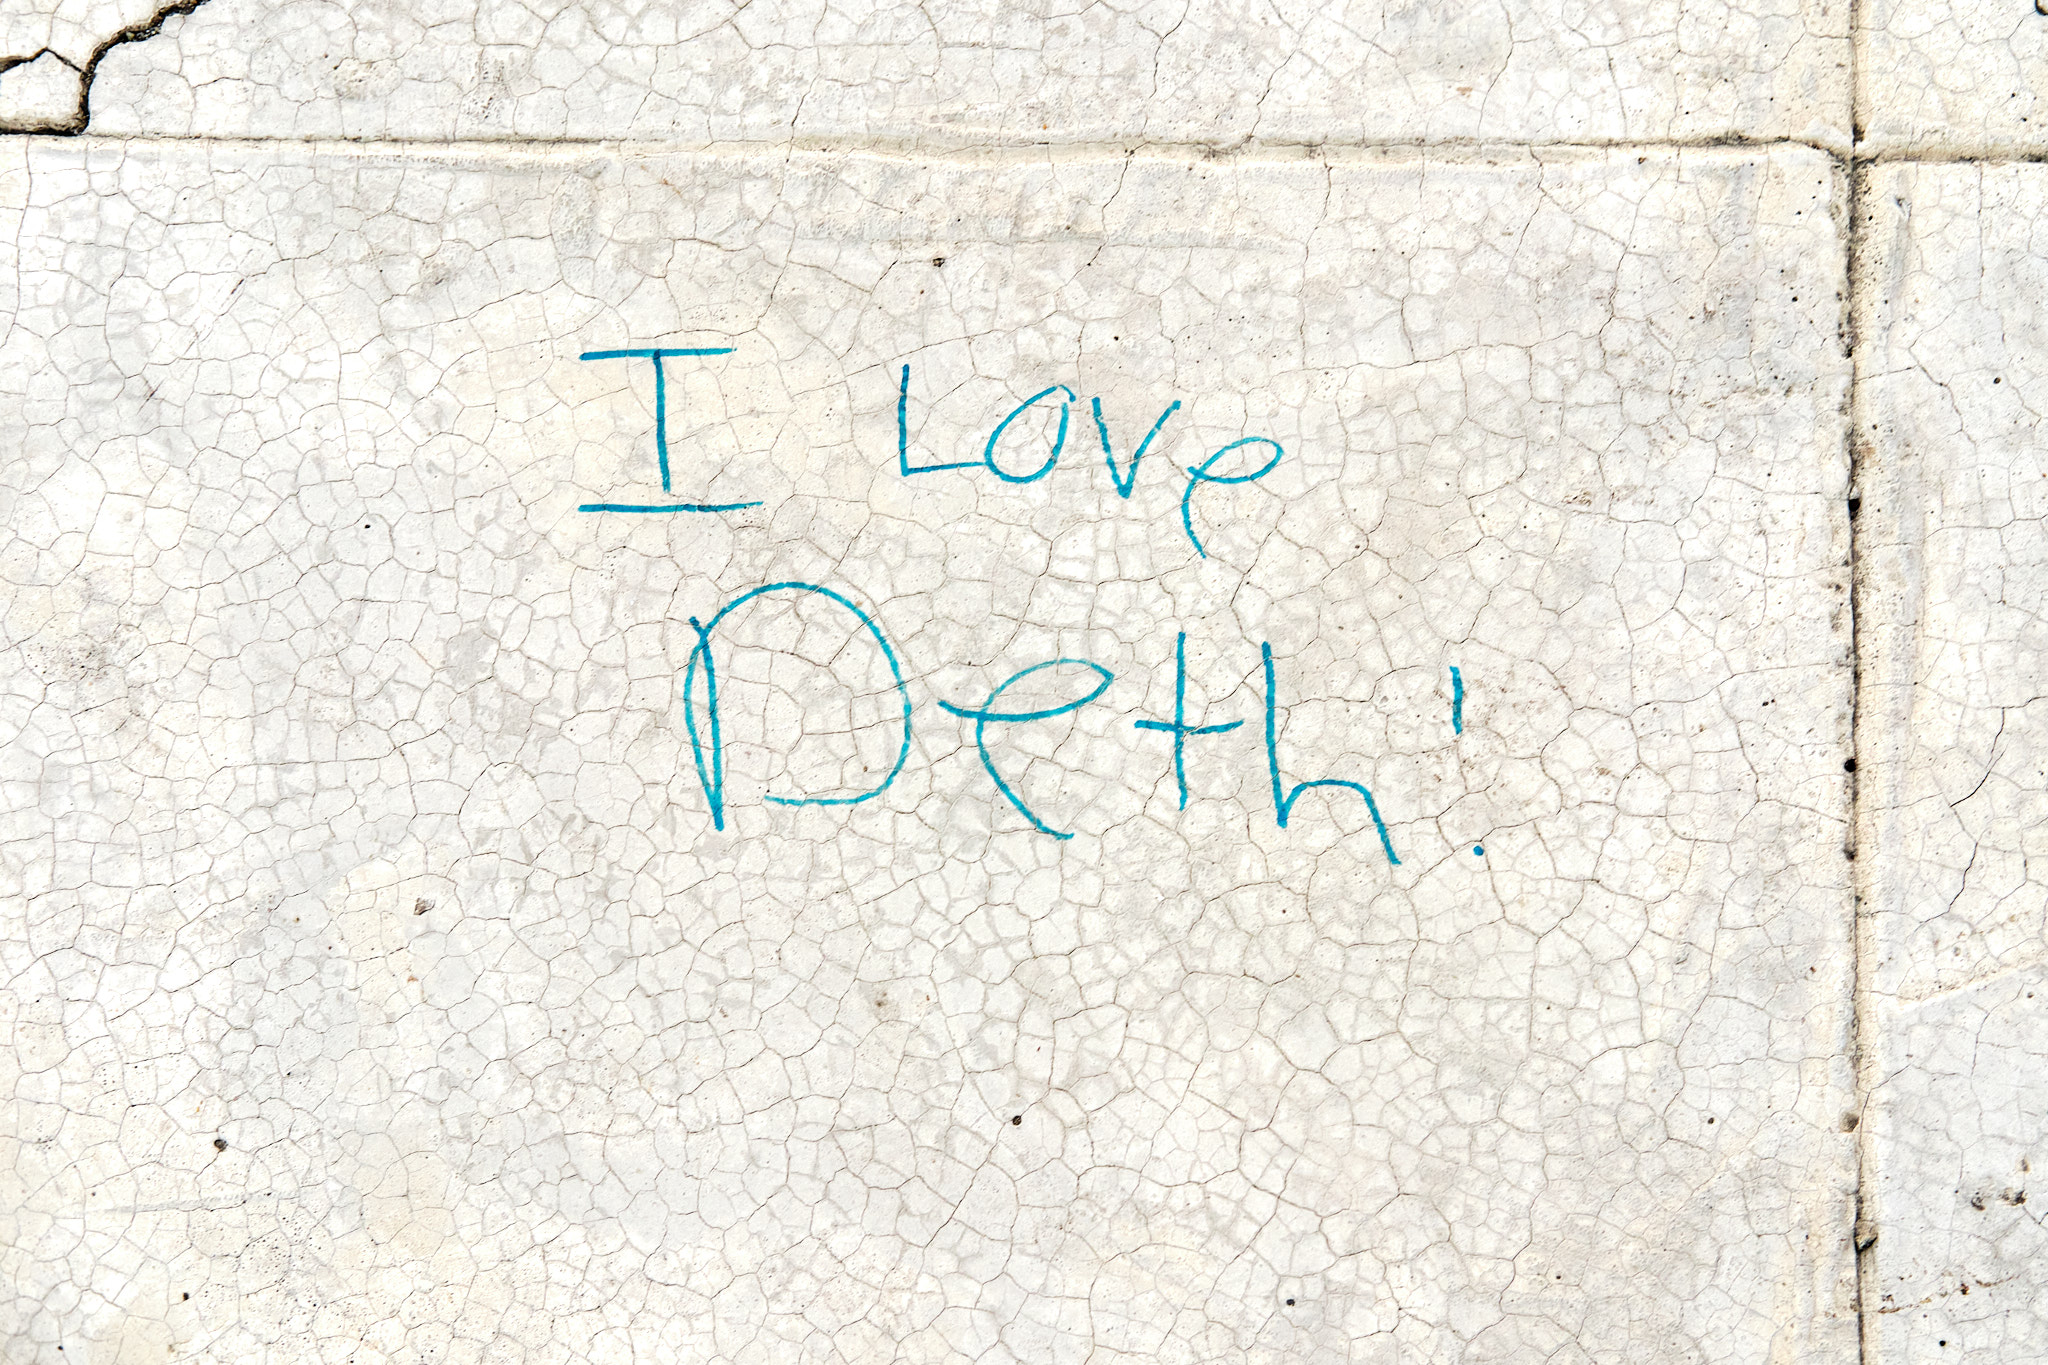 I Love
Deth!